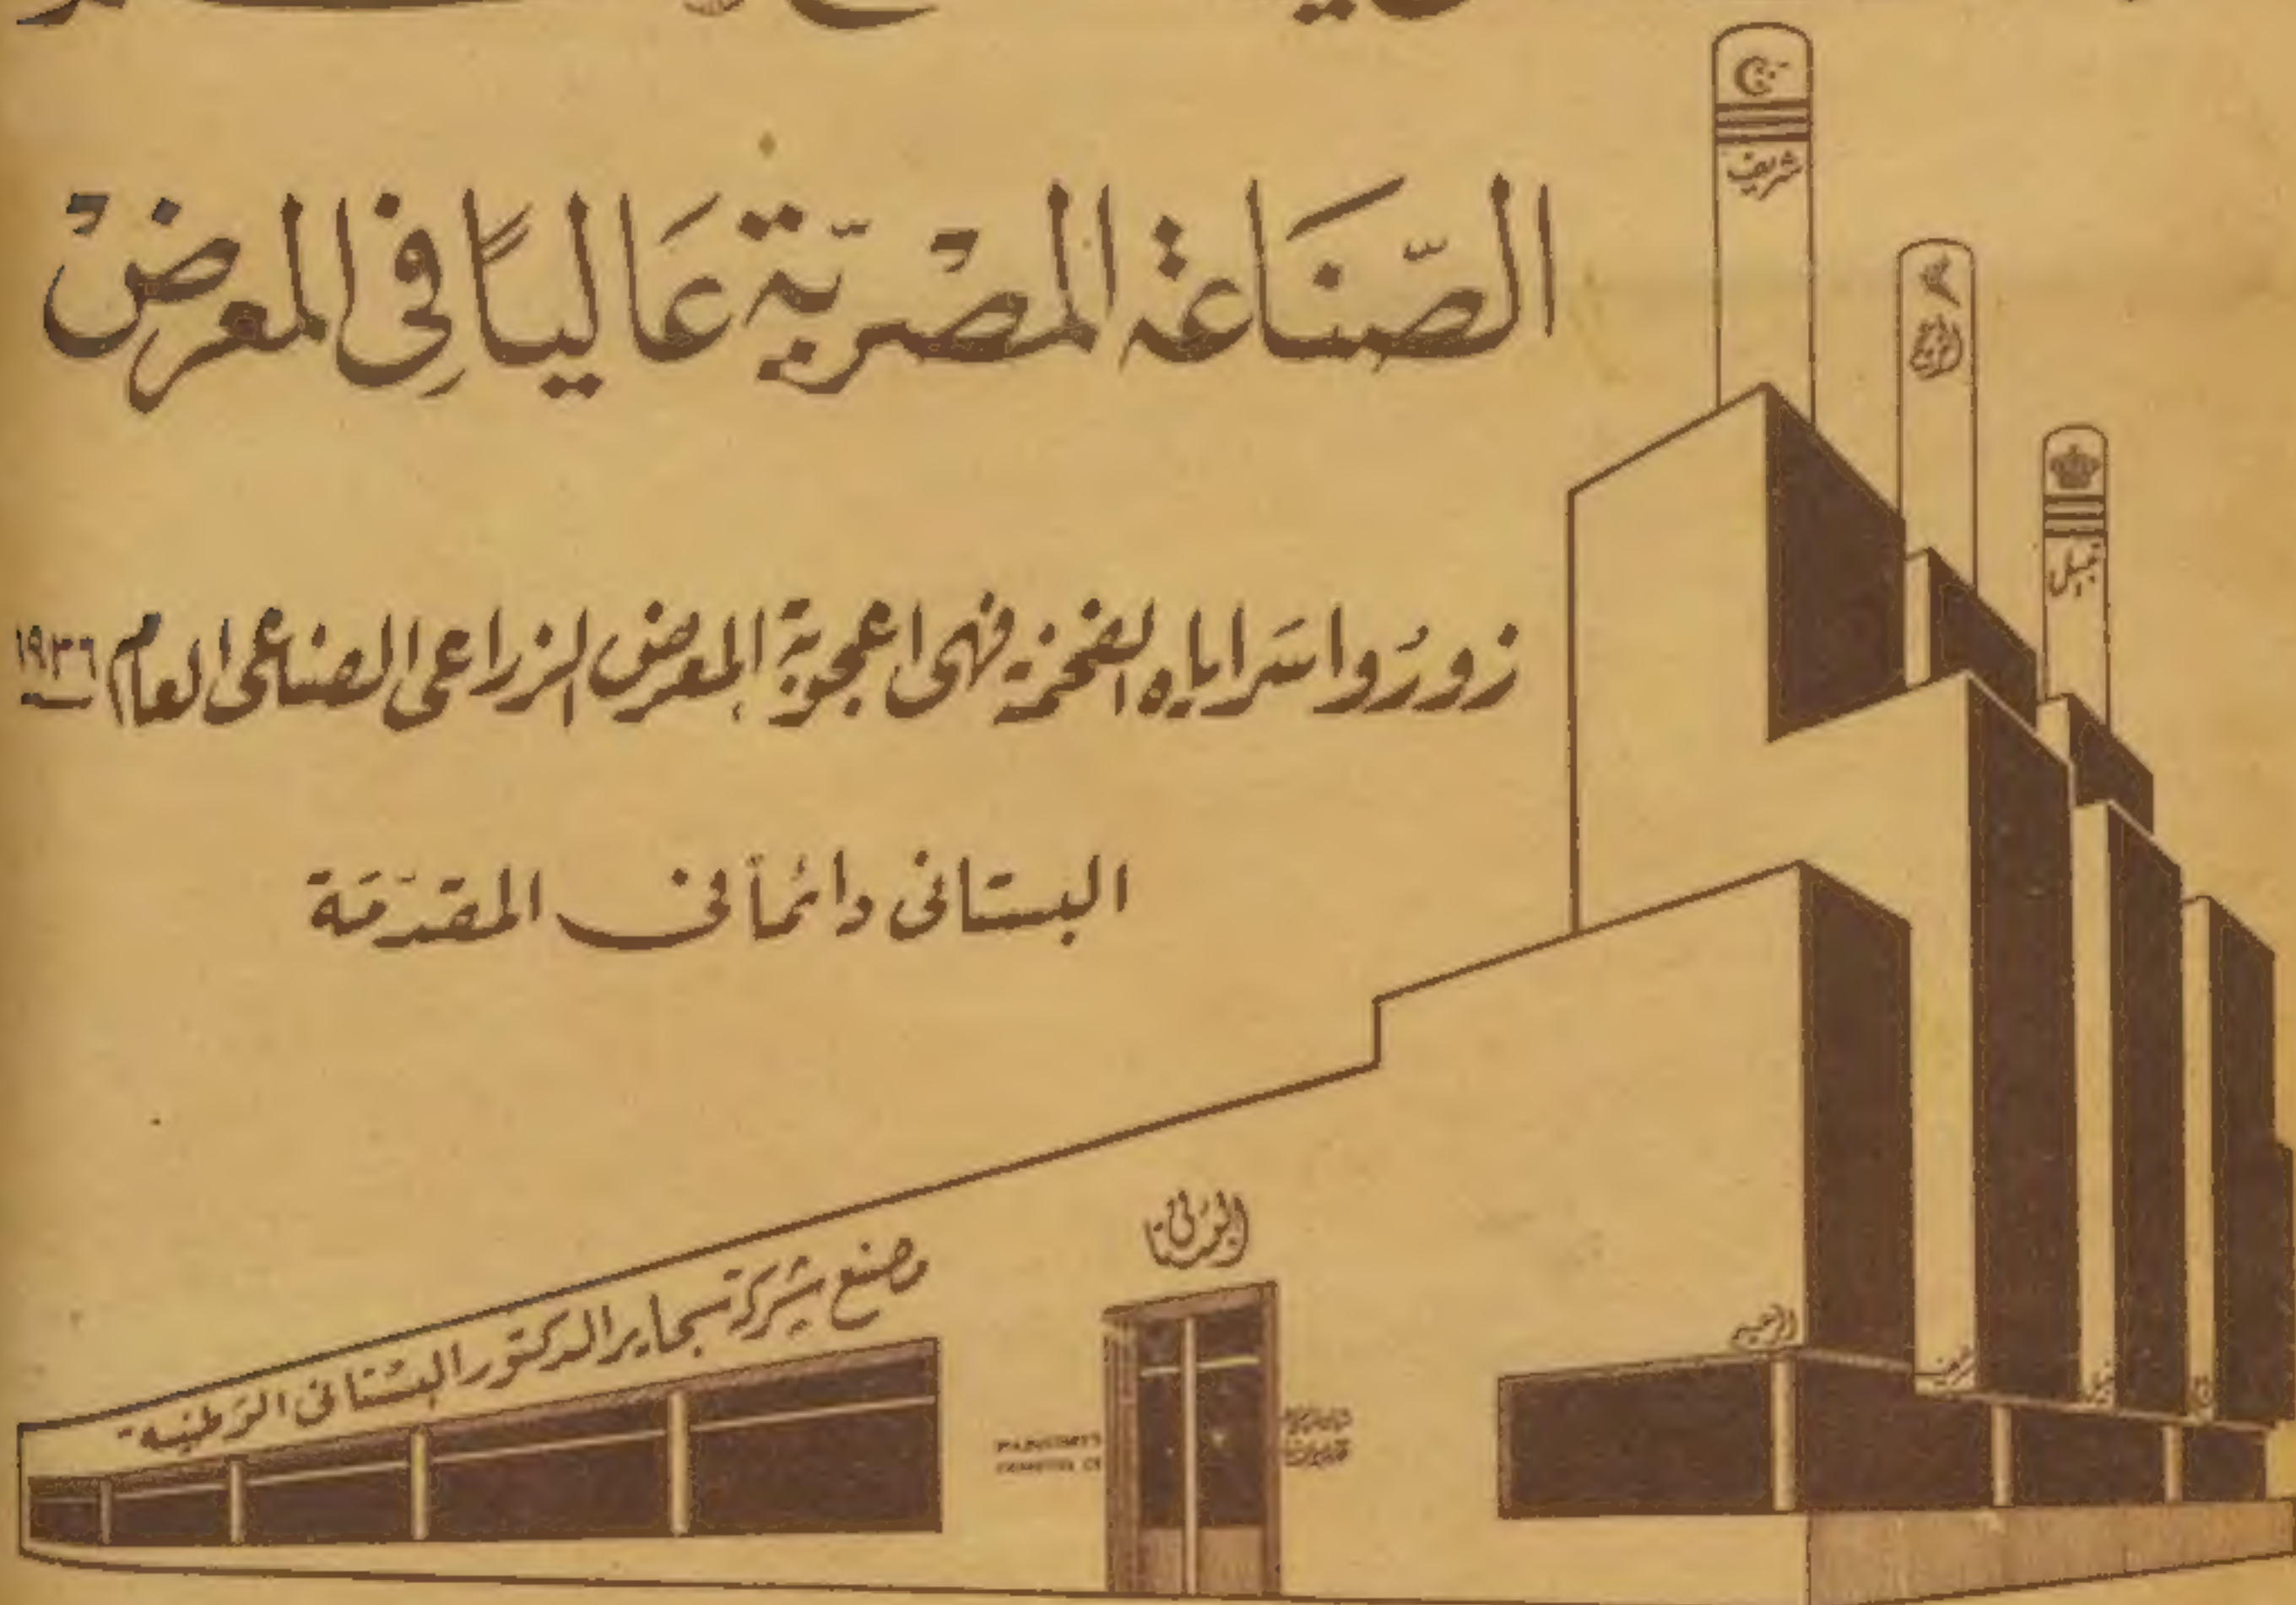 شريف
الصّناعة المصْريّة عَاليًا فِى المعرضْ
نبيل
زورُوا سَراياه الفخمة فهى اعجوبة المعرض الزراعى الصناعى العام ١٩٣٦
البستانى دائماً فى المقدّمَة
البستانى
مصنع شركة سجاير الدكتور البستانى الوطنية